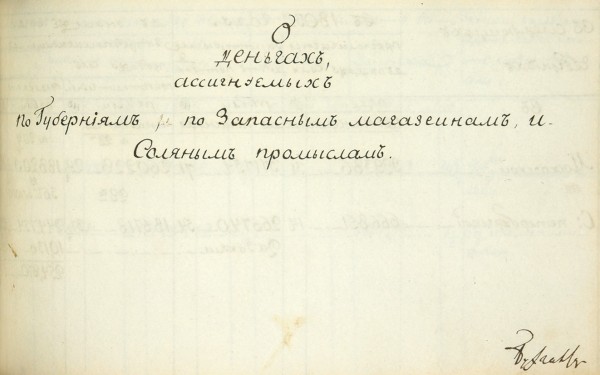 О
деньгахъ,
ассигнуемыхъ
по Губерніямъ, и по Запаснымъ магазеинамъ, и
Солянымъ промысламъ.